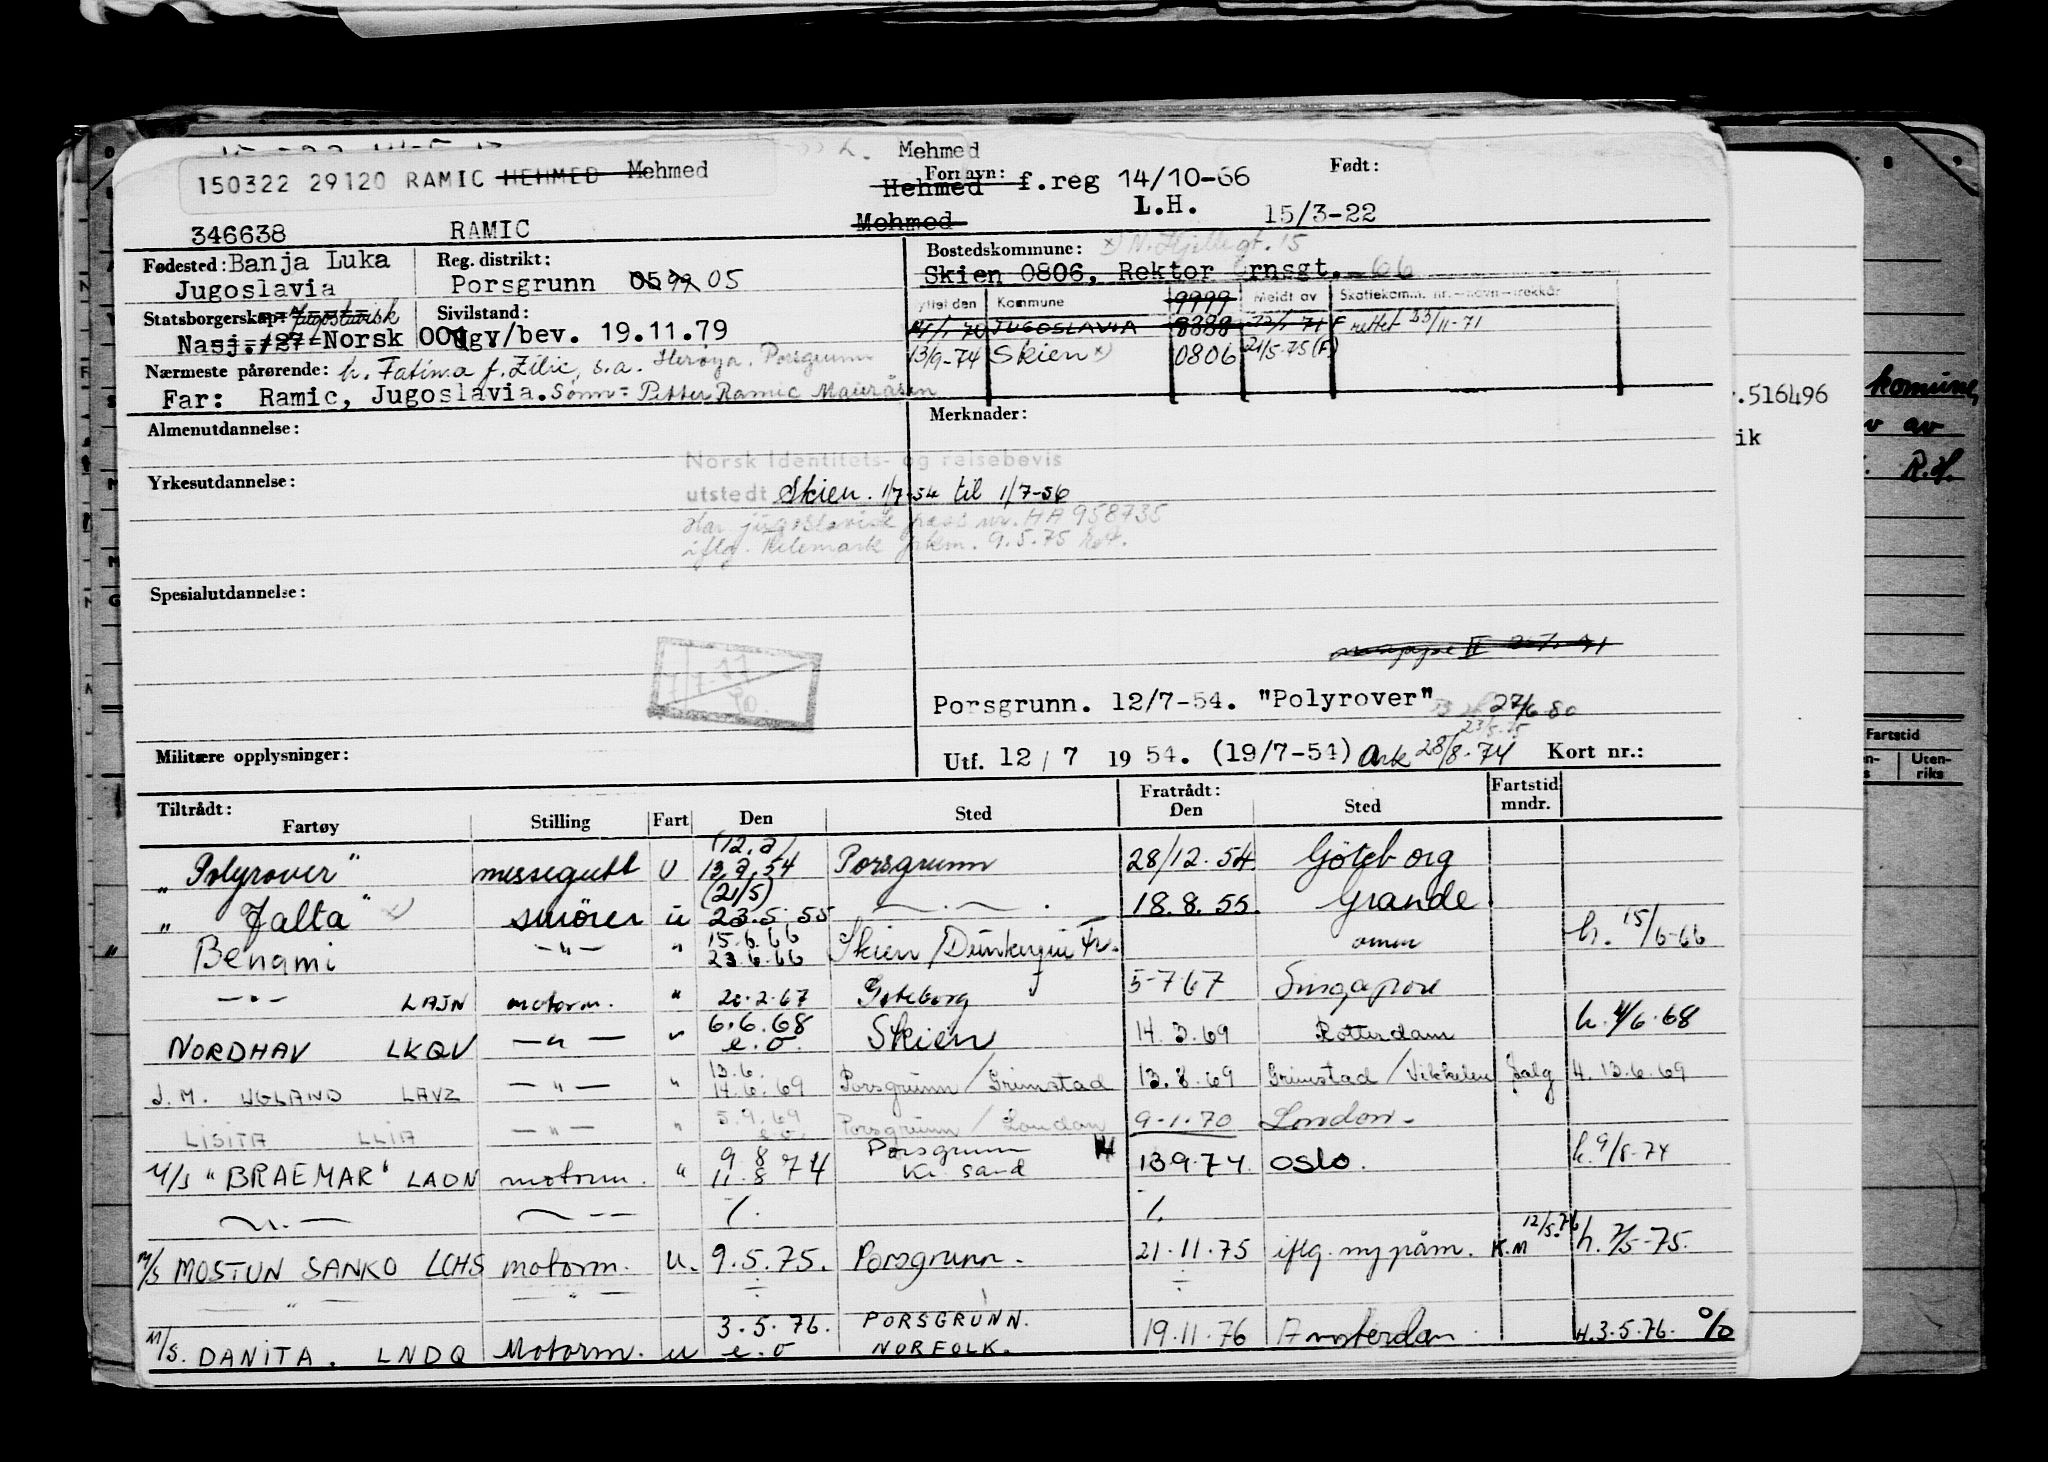 150322 29120 RAMIC HEHMED Mehmed
Mehmed
Fornavn:
Hehmed f.reg 14/10-66
L.H.
Født:
346638 RAMIC Mehmed 15/3-22
Fødested: Banja Luka
Jugoslavia
Reg. distrikt:
Porsgrunn 0599 05
Bostedskommune: x) N. Hjellegt. 15
Skien 0806, Rektor Ørnsgt. 66
Statsborgerskap: Jugoslavisk
Nasj. 127 Norsk 000
Sivilstand:
Ugv/bev. 19.11.79
flyttet den Kommune 9999 Meldt av Skattekomm. nr.-navn-trekkår
JUGOSLAVIA 8888 F rettet 23/11-71
13/9-74 Skien x) 0806 21/5-75 (F)
Nærmeste pårørende: h. Fatima f. Zilic, s.a. Herøya, Porsgrunn
Far: Ramic, Jugoslavia. Sønn = Petter Ramic
Almenutdannelse:
Merknader:
Norsk Identitets- og reisebevis
Yrkesutdannelse:
utstedt Skien. 1/7-54 til 1/7-56
Har jugoslavisk pass nr. HA 958735
iflg. Telemark 9.5.75
Spesialutdannelse:
7/7-77
Porsgrunn. 12/7-54. "Polyrover" 27/6 80
23/5-75
Militære opplysninger:
Utf. 12/7 1954. (19/7-54) Ark 28/8-74 Kort nr.:
Tiltrådt:
Fartøy Stilling Fart Den Sted
Fratrådt:
Den Sted Fartstid
mndr.
"Polyrover" messegutt U (12.2) 13.9.54 Porsgrunn 28/12.54 Göteborg
" Jalta " x) smører u (21/5) 23.5 55 —.—. 18.8.55. Grande
" Benami —"— " 15.6.66 23.6.66 Skien/Dunkerque Fr. h. 15/6-66
—"— LAJN motorm. " 20.2.67 Goteborg 5-7 67 Singapore
NORDHAV LKQV —"— " 6.6.68 e.o. Skien 14.3.69 Rotterdam h. 4/6-68
J.M. UGLAND LAVZ —"— " 13.6. 14.6.69 Porsgrunn/Grimstad 13.8.69 Grimstad/Vikkelen Salg H. 13.6.69
LISITA LLIA —"— " 5.9.69 e.o. Porsgrunn/London 9-1.70 London.
M/S "BRAEMAR" LADN motorm. " 9.8 11.8 74 Porsgrunn Kr. sand 13.9.74. Oslo. h. 9/8-74
—"— —"— ./. ./.
M/S MOSTUN SANKO LCHS motorm. u. 9.5.75. Porsgrunn. 21.11.75 iflg. ny påm. K.M 12/5.76 h. 7/5-75.
—"— —"— ÷ ÷
M/S. DANITA. LNDQ Motorm. u 3.5.76. e.o PORSGRUNN. NORFOLK. 19.11.76 Amsterdam H.3-5.76. %
516496
ik
komune,
av
R.H.
Fartstid
Uten-
riks